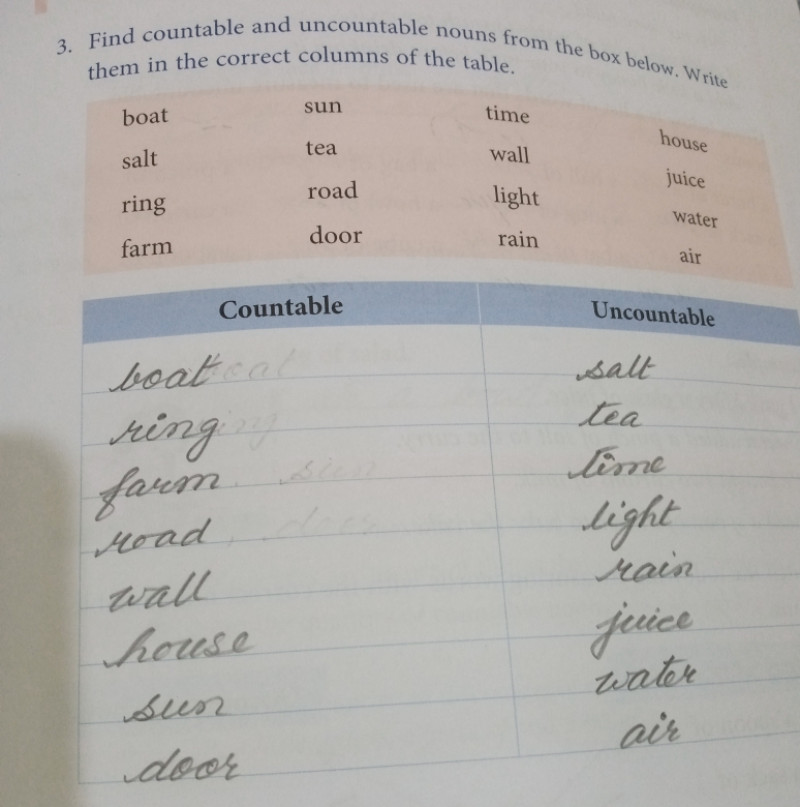 3. Find countable and uncountable nouns from the box below. Write
them in the correct columns of the table.
boat sun time house
salt tea wall juice
ring road light water
farm door rain air
Countable Uncountable
boat salt
ring tea
farm time
road light
wall rain
house juice
sun water
door air